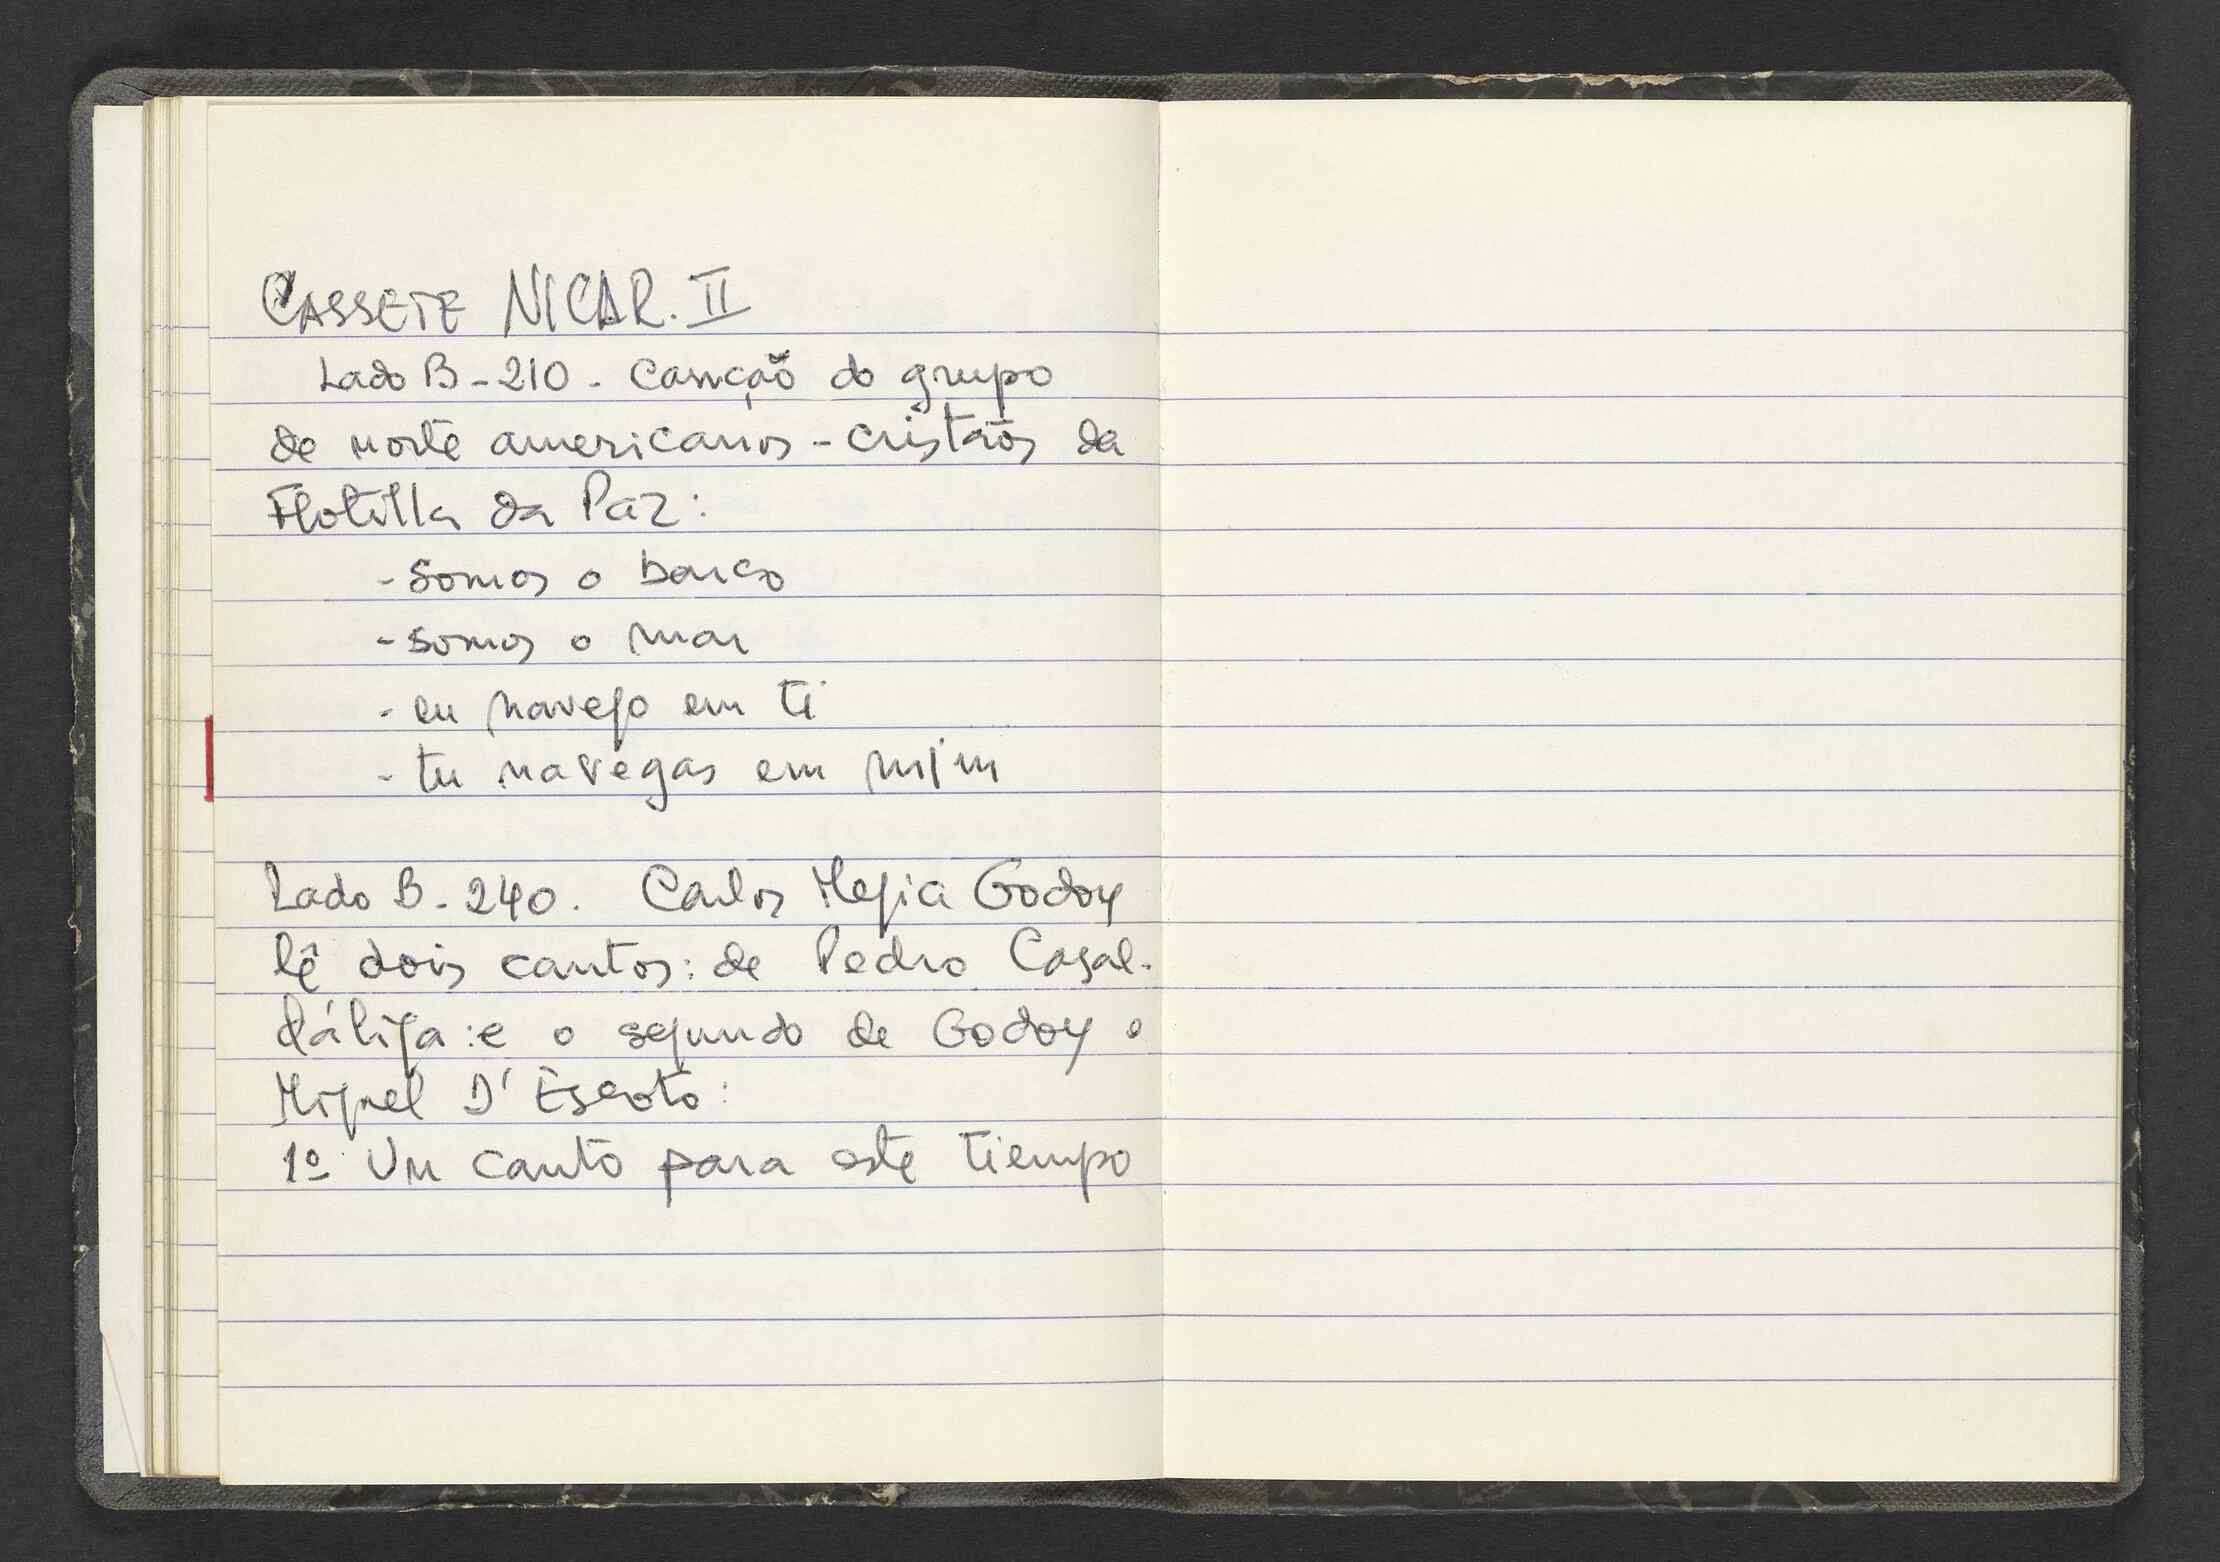 CASSETE NICAR. II
Lado B - 210 - Canção do grupo
de norte americanos - cristãos da
Flotilla da Paz:
- Somos o barco
- somos o mar
- eu navego em ti
- tu navegas em mim
Lado B - 240. Carlos Mejia Godoy
lê dois cantos: de Pedro Casal-
dáliga: e o segundo de Godoy e
Miguel D'Escoto:
1º Un canto para este tiempo